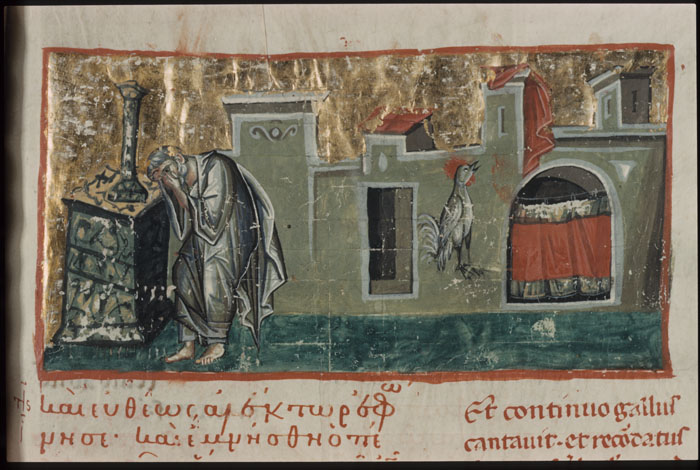 και ευθεως αλεκτωρ εφω
νησε· και εμνησθη ο πε
Et continuo gallus
cantauit· et recordatus